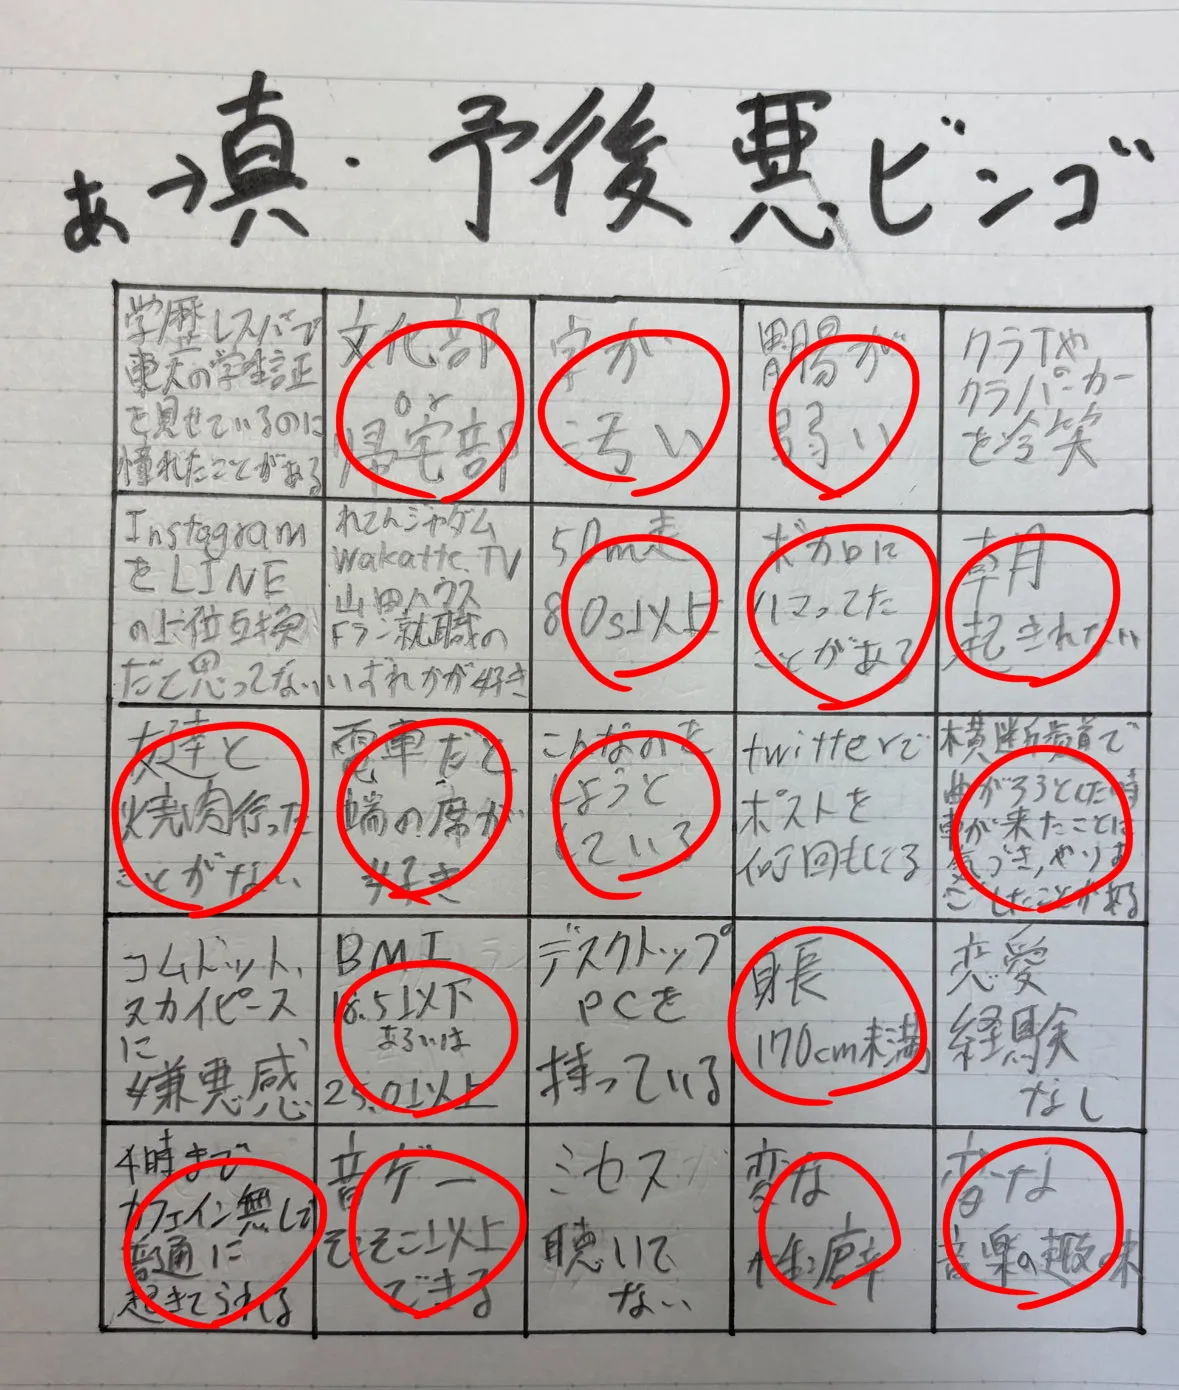 あっ→真・予後悪ビンゴ
学歴レスバで
東大の学生証
を見せているのに
憧れたことがある
文化部
or
帰宅部
字が
汚い
胃腸が
弱い
クラTや
クラパーカー
を冷笑
Instagram
をLINE
の上位互換
だと思ってない
れてんジャダム
Wakatte.TV
山田ハウス
Fラン就職の
いずれかが好き
50m走
8.0s以上
ボカロに
ハマってた
ことがあて
朝
起きれない
友達と
焼肉行った
ことがない
電車だと
端の席が
好き
こんなのを
しようと
している
twitterで
ポストを
何回もしてる
横断歩道で
曲がろうとした時
車が来たことに
気づき、やりす
ごしたことがある
コムドット、
スカイピース
に
嫌悪感
BMI
18.5以下
あるいは
25.0以上
デスクトップ
PCを
持っている
身長
170cm未満
恋愛
経験
なし
4時まで
カフェイン無しで
普通に
起きてられる
音ゲー
そこそこ以上
できる
ミセス
聴いて
ない
変な
性癖
変な
音楽の趣味